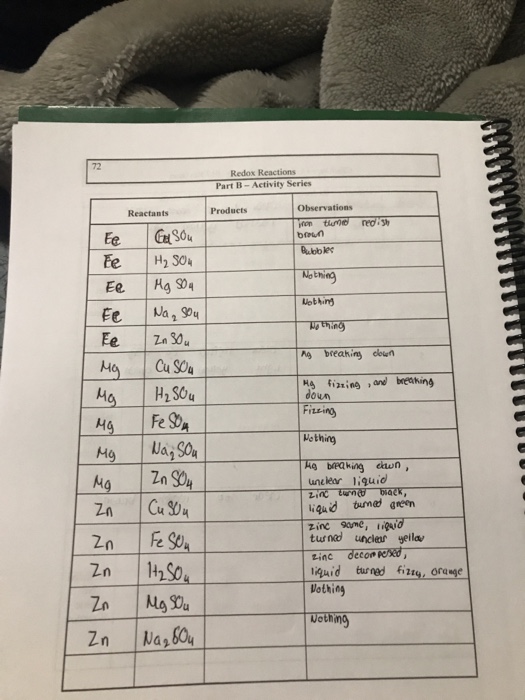 72
Redox Reactions
Part B – Activity Series
Reactants Products Observations
Fe CuSO4 iron turned redish
brown
Fe H2SO4 Bubbles
Fe MgSO4 Nothing
Fe Na2SO4 Nothing
Fe ZnSO4 Nothing
Mg CuSO4 Mg breaking down
Mg H2SO4 Mg fizzing, and breaking
down
Mg FeSO4 Fizzing
Mg Na2SO4 Nothing
Mg ZnSO4 Mg breaking down,
unclear liquid
Zn CuSO4 zinc turned black,
liquid turned green
Zn FeSO4 zinc same, liquid
turned unclear yellow
Zn H2SO4 zinc decomposed,
liquid turned fizzy, orange
Zn MgSO4 Nothing
Zn Na2SO4 Nothing